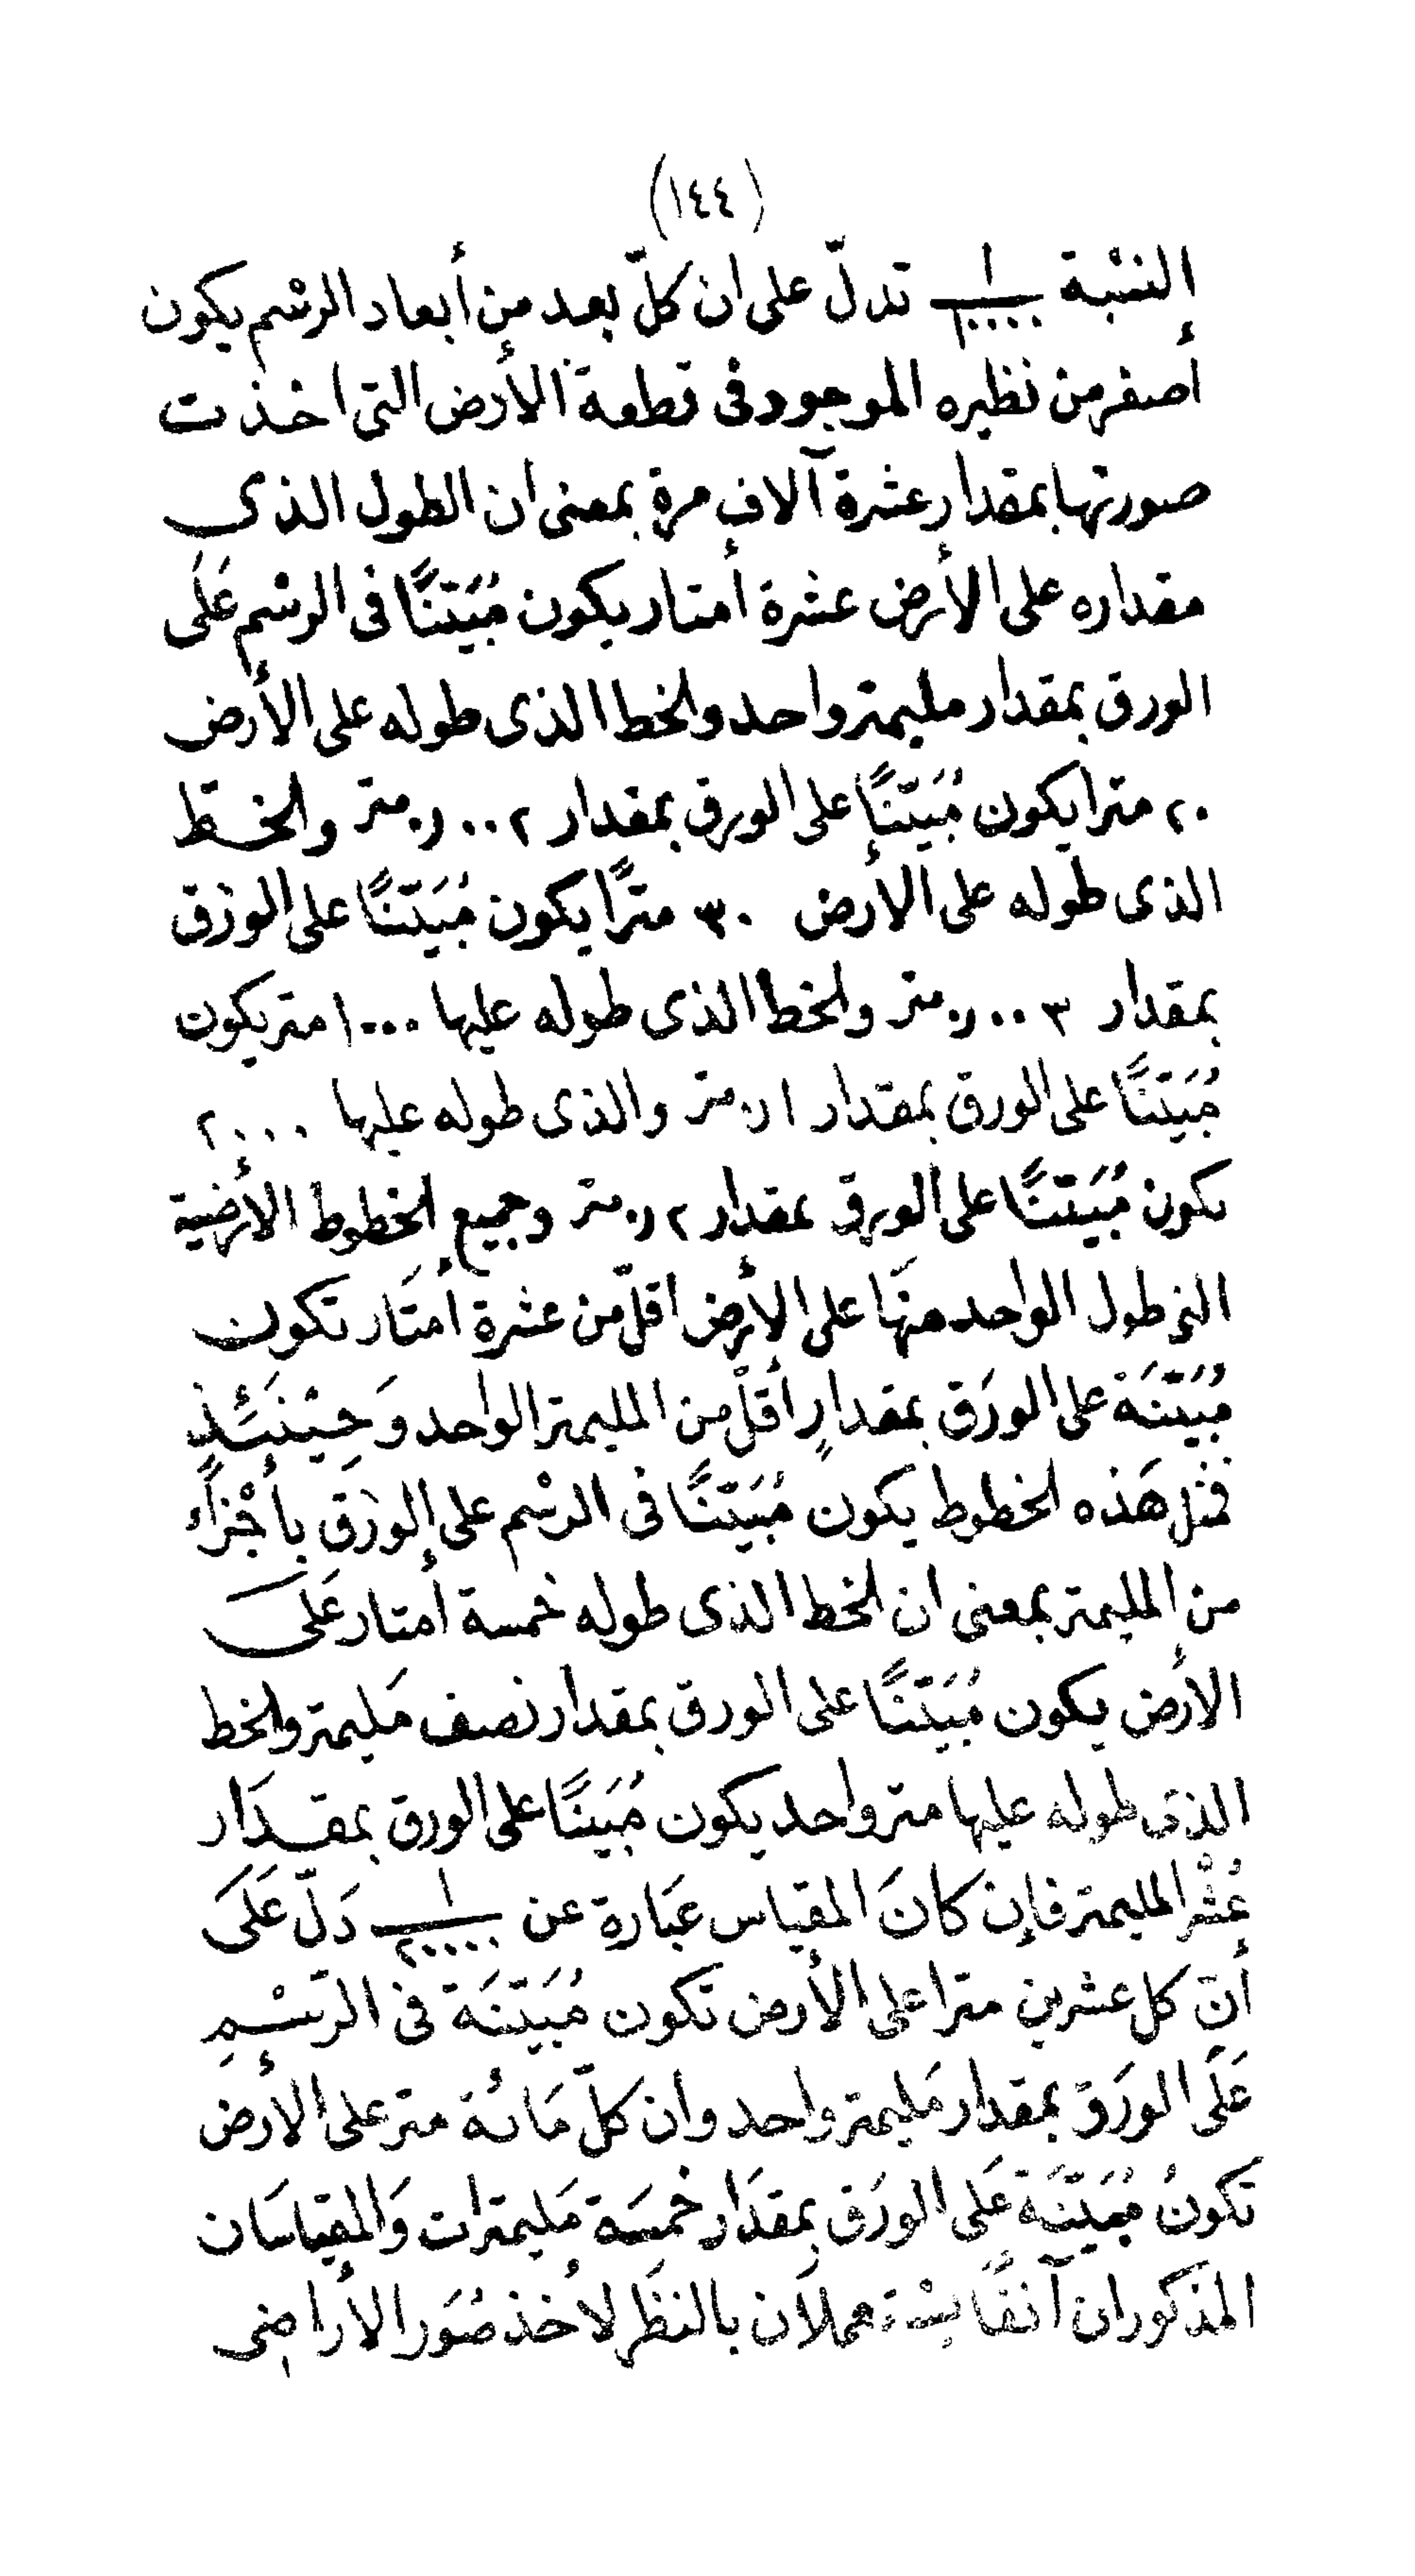 (١٤٤)
النسْبة ١/١٠٠٠٠ تدلّ على ان كلّ بعد من أبعاد الرسْم يكون
أصغر من نظيره الموجود فى قطعة الأرض التى اخذت
صورتها بمقدار عشرة آلاف مرة بمعنى ان الطول الذى
مقداره على الأرض عشرة أمتار يكون مُبَيَّنًا فى الرسْم عَلَى
الورق بمقدار مليمتر واحد والخط الذى طوله على الأرض
٢٠ مترا يكون مُبَيَّنًا على الورق بمقدار ٢٠٠ر٠ متر والخطّ
الذى طوله على الأرض ٣٠ مترًا يكون مُبَيَّنًا على الورَق
بمقدار ٣٠٠ر٠ متر والخط الذى طوله عليها ١٠٠٠ متر يكون
مُبَيَّنًا على الورق بمقدار ١ر٠ متر والذى طوله عليها ٢٠٠٠
يكون مُبَيَّنًا على الورق بمقدار ٢ر٠ متر وجميع الخطوط الأرضية
التى طول الواحد منهَا على الأرض اقلّ من عشرة أمتَار تكون
مُبَيَّنَة على الورَق بمقدارٍ أقلّ من المليمتر الواحد وَحِيْنَئِذٍ
فمثل هَذه الخطوط يكون مُبَيَّنًا فى الرسْم على الورَق بأجْزَاء
من المليمتر بمعنى ان الخط الذى طوله خمسة أمتار عَلَى
الأرض يكون مُبَيَّنًا على الورق بمقدار نصف مَليمتر والخط
الذى طوله عليها متر واحد يكون مُبَيَنًا على الورق بمقدَار
عُشْر المليمتر فإن كانَ المقياس عبَارة عن ١/٢٠٠٠٠ دَلّ عَلَى
أنّ كل عشرين مترا على الأرض تكون مُبَيَّنَة فى الرّسْمِ
عَلَى الورَق بمقدار مَليمتر واحد وان كلّ مَائة متر على الأرض
تَكونُ مُبَيَّنَة عَلَى الورَق بمقدَار خمسَة مَليمترات وَالمقياسَان
المذكوران آنفًا يسْتعملَان بالنظَر لأخذ صُوَر الأراضى